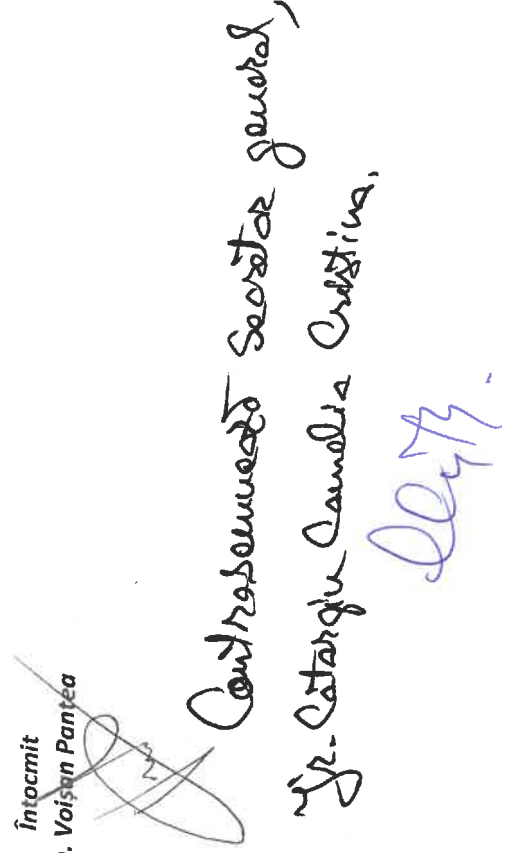 Întocmit
. Voișan Pantea
Contrasemnează Secretar general,
Jr. Catargiu Camelia Cristina.